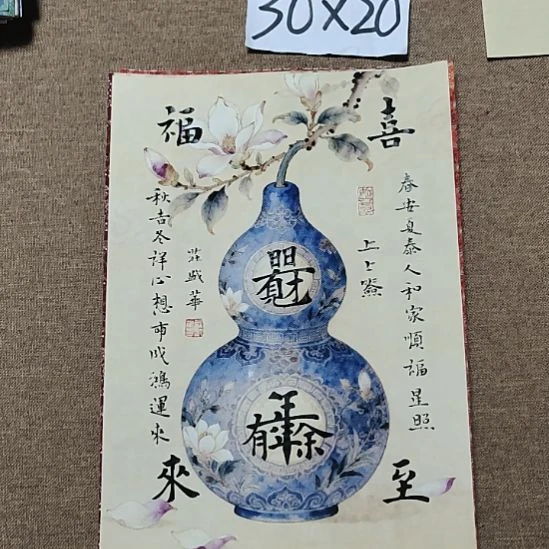 30X20
喜至
福來
春安夏泰人和家順福星照
上上簽
秋吉冬祥心想事成鴻運來
莊盛華